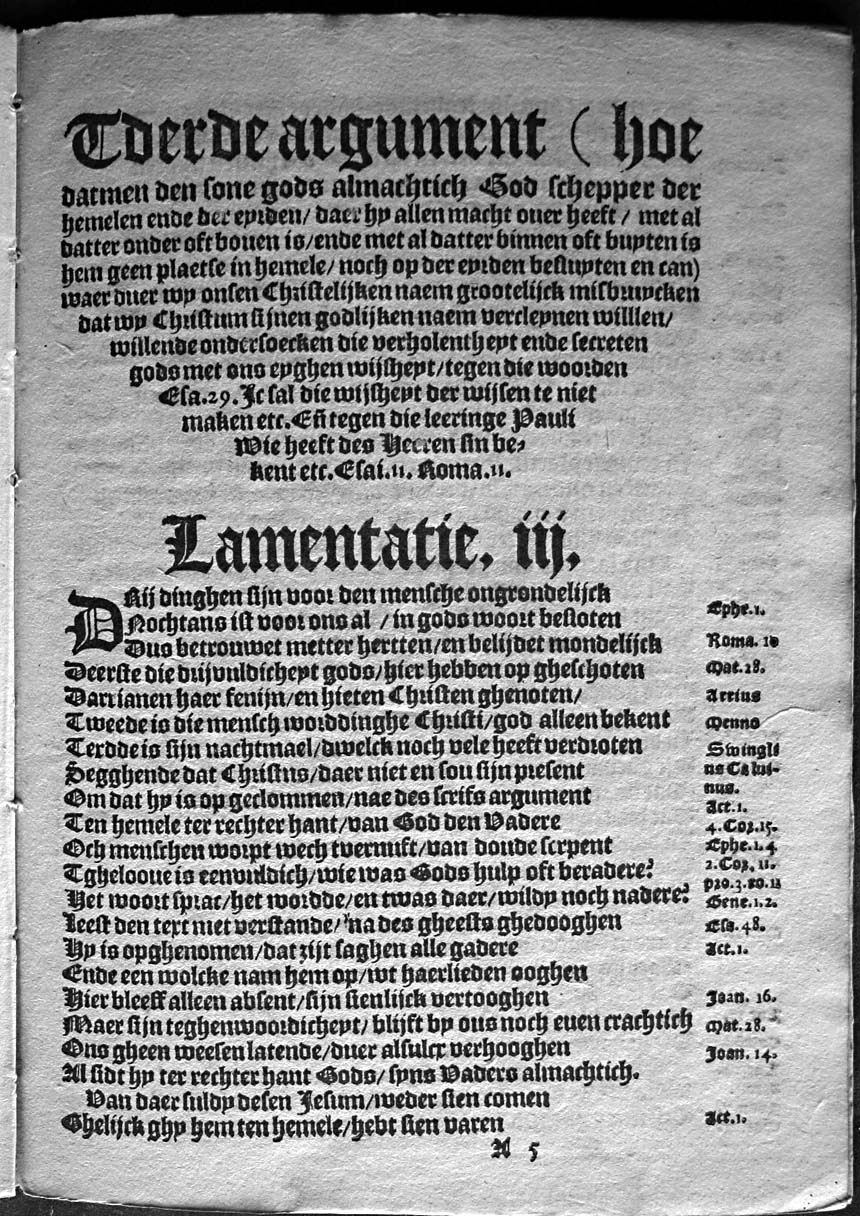 Tderde argument ( hoe
datmen den sone gods almachtich God schepper der
hemelen ende der eyrden/ daer hy allen macht ouer heeft / met al
datter onder oft bouen is/ende met al datter binnen oft buyten is
hem geen plaetse in hemele/ noch op der eyrden besluyten en can)
waer duer wy onsen Christelijken naem grootelijck misbruycken
dat wy Christum sijnen godlijken naem vercleynen willlen/
willende ondersoecken die verholentheyt ende secreten
gods met ons eyghen wijsheyt/tegen die woorden
Esa.29. Jc sal die wijsheyt der wijsen te niet
maken etc. Eñ tegen die leeringe Pauli
Wie heeft des Heeren sin be-
kent etc. Esai.11. Roma.11.
Lamentatie. iij.
DRij dinghen sijn voor den mensche ongrondelijck
Nochtans ist voor ons al / in gods woort besloten Ephe.1.
Dus betrouwet metter hertten/en belijdet mondelijck Roma. 10
Deerste die drijuuldicheyt gods/hier hebben op gheschoten Mat.28.
Darrianen haer fenijn/en hieten Christen ghenoten/ Arrius
Tweede is die mensch worddinghe Christi/god alleen bekent Menno
Terdde is sijn nachtmael/dwelck noch vele heeft verdroten Swingli
Segghende dat Christus/daer niet en sou sijn present us Calui-
Om dat hy is op geclommen/nae des scrifs argument nus.
Ten hemele ter rechter hant/van God den Vadere Act.1.
Och menschen worpt wech tvernuft/van doude serpent 4.Cor.15.
Tghelooue is eenvuldich/wie was Gods hulp oft beradere? Ephe.1.4
Het woort sprac/het wordde/en twas daer/wildy noch nadere? 2.Cor.11.
Leest den text met verstande/ na des gheests ghedooghen pro.3.ro.11
Hy is opghenomen/dat zijt saghen alle gadere Gene.1.2.
Ende een wolcke nam hem op/wt haerlieden ooghen Esa.48.
Hier bleeff alleen absent/sijn sienlijck vertooghen Act.1.
Maer sijn teghenwoordicheyt/ blijft by ons noch euen crachtich Joan. 16.
Ons gheen weesen latende/duer alsulcx verhooghen Mat.28.
Al sidt hy ter rechter hant Gods/ syns Vaders almachtich. Joan. 14.
Van daer suldy desen Jesum/weder sien comen
Ghelijck ghy hem ten hemele/hebt sien varen Act.1.
A 5